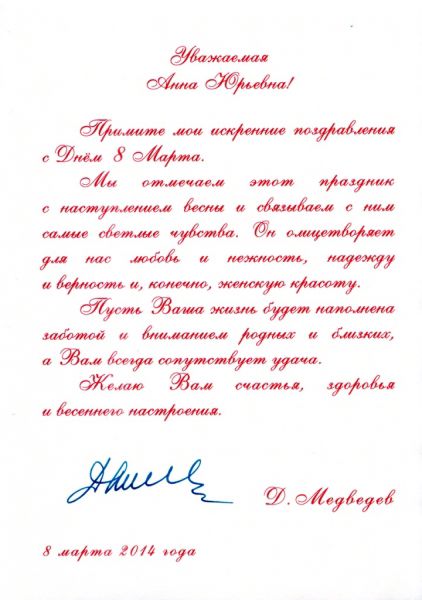 Уважаемая
Анна Юрьевна!
Примите мои искренние поздравления
с Днём 8 Марта.
Мы отмечаем этот праздник
с наступлением весны и связываем с ним
самые светлые чувства. Он олицетворяет
для нас любовь и нежность, надежду
и верность и, конечно, женскую красоту.
Пусть Ваша жизнь будет наполнена
заботой и вниманием родных и близких,
а Вам всегда сопутствует удача.
Желаю Вам счастья, здоровья
и весеннего настроения.
Д. Медведев
8 марта 2014 года